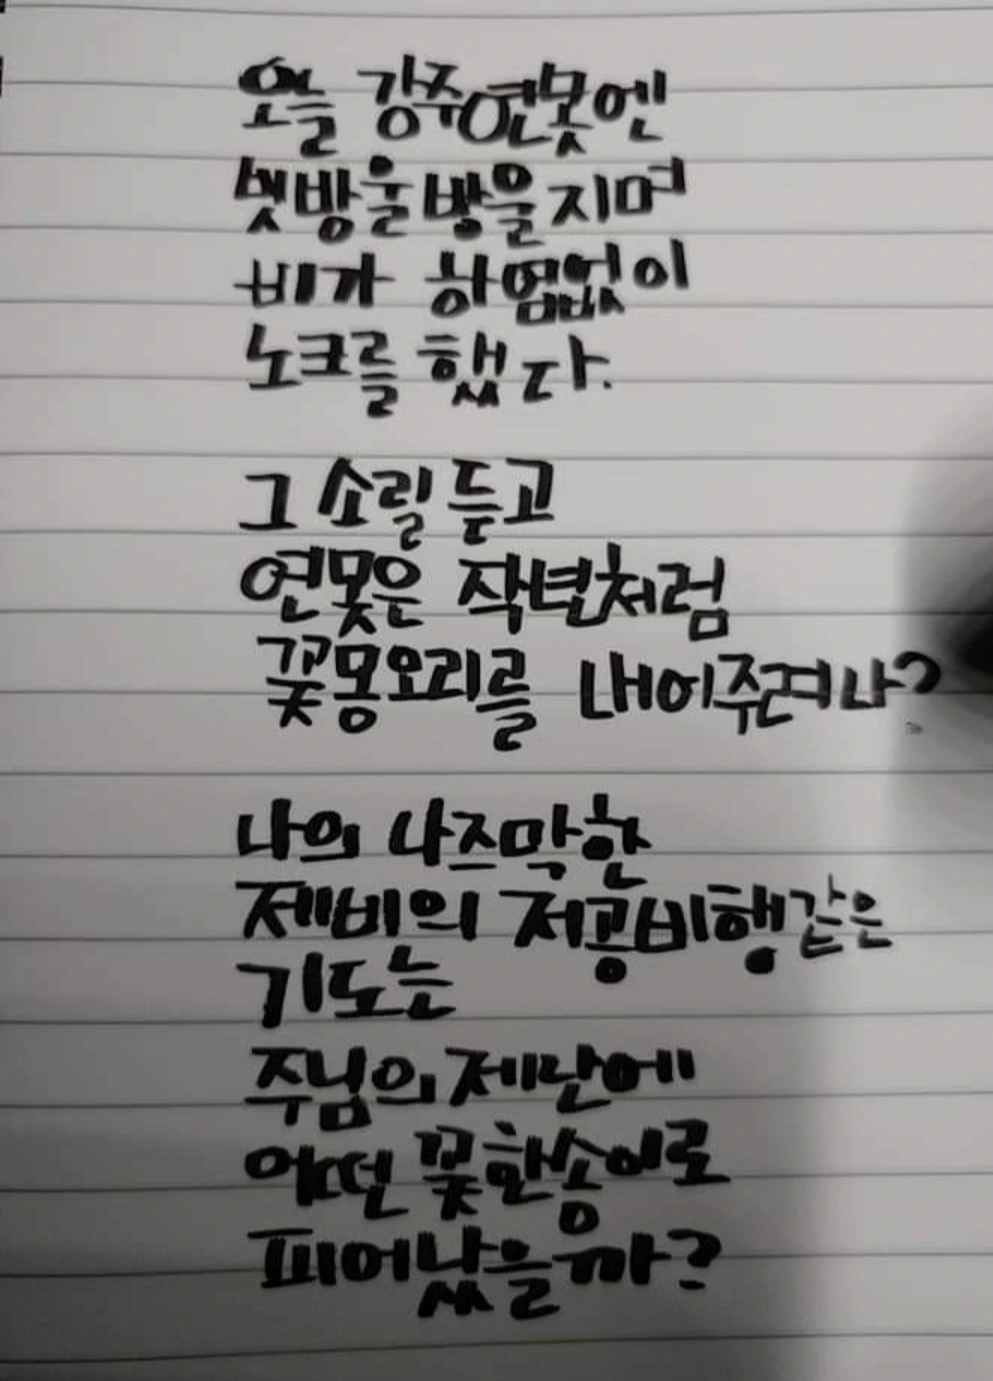 오늘 강주연못엔
빗방울방울지며
비가 하염없이
노크를 했다.
그 소릴 듣고
연못은 작년처럼
꽃몽오리를 내어주려나?
나의 나즈막한
제비의 저공비행같은
기도는
주님의 제단에
어떤 꽃한송이로
피어났을까?